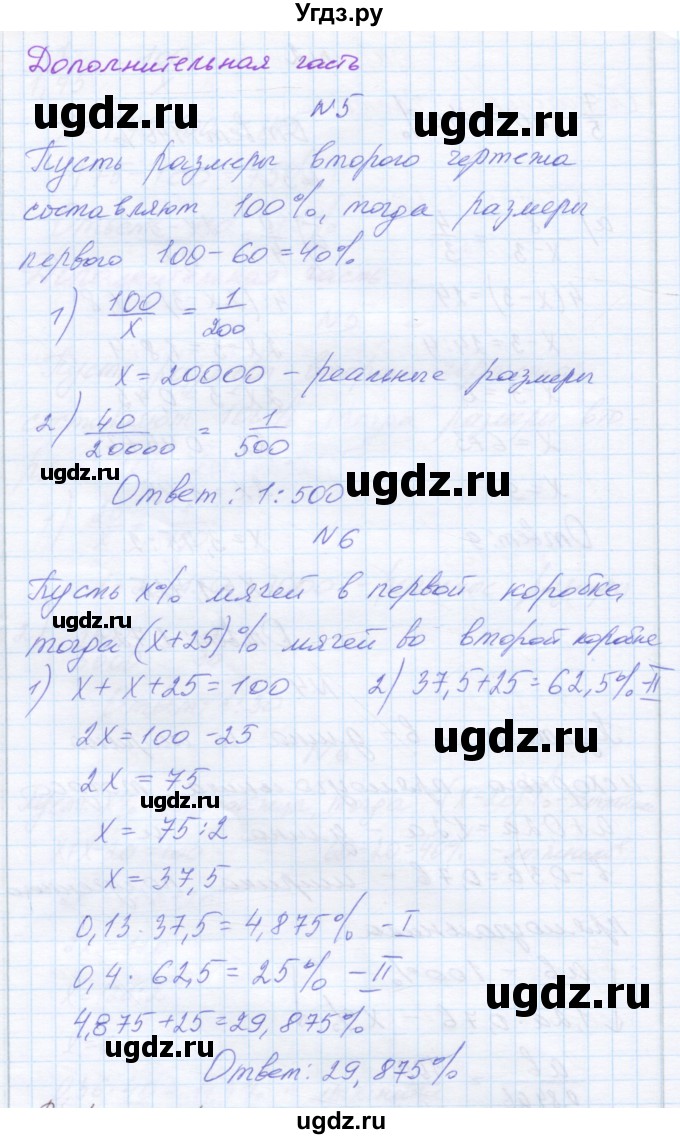 Угдз.ру
Дополнительная часть
ugdz.ru
N5
ugdz.ru
Пусть размеры второго чертежа
составляют 100%, тогда размеры
первого 100-60=40%
ugdz.ru
1) 100/x = 1/200
x=20000 - реальные размеры
2) 40/20000 = 1/500
ugdz.ru
ugdz.ru
Ответ: 1:500
N6
Пусть x% мячей в первой коробке,
ugdz.ru
тогда (x+25)% мячей во второй коробке
1) x+x+25=100 2) 37,5+25=62,5%-II
2x=100-25
ugdz.ru
2x=75
ugdz.ru
x=75:2
x=37,5
0,13·37,5=4,875% - I
0,4·62,5=25% - II
ugdz.ru
4,875+25=29,875%
ugdz.ru
Ответ: 29,875%
ugdz.ru